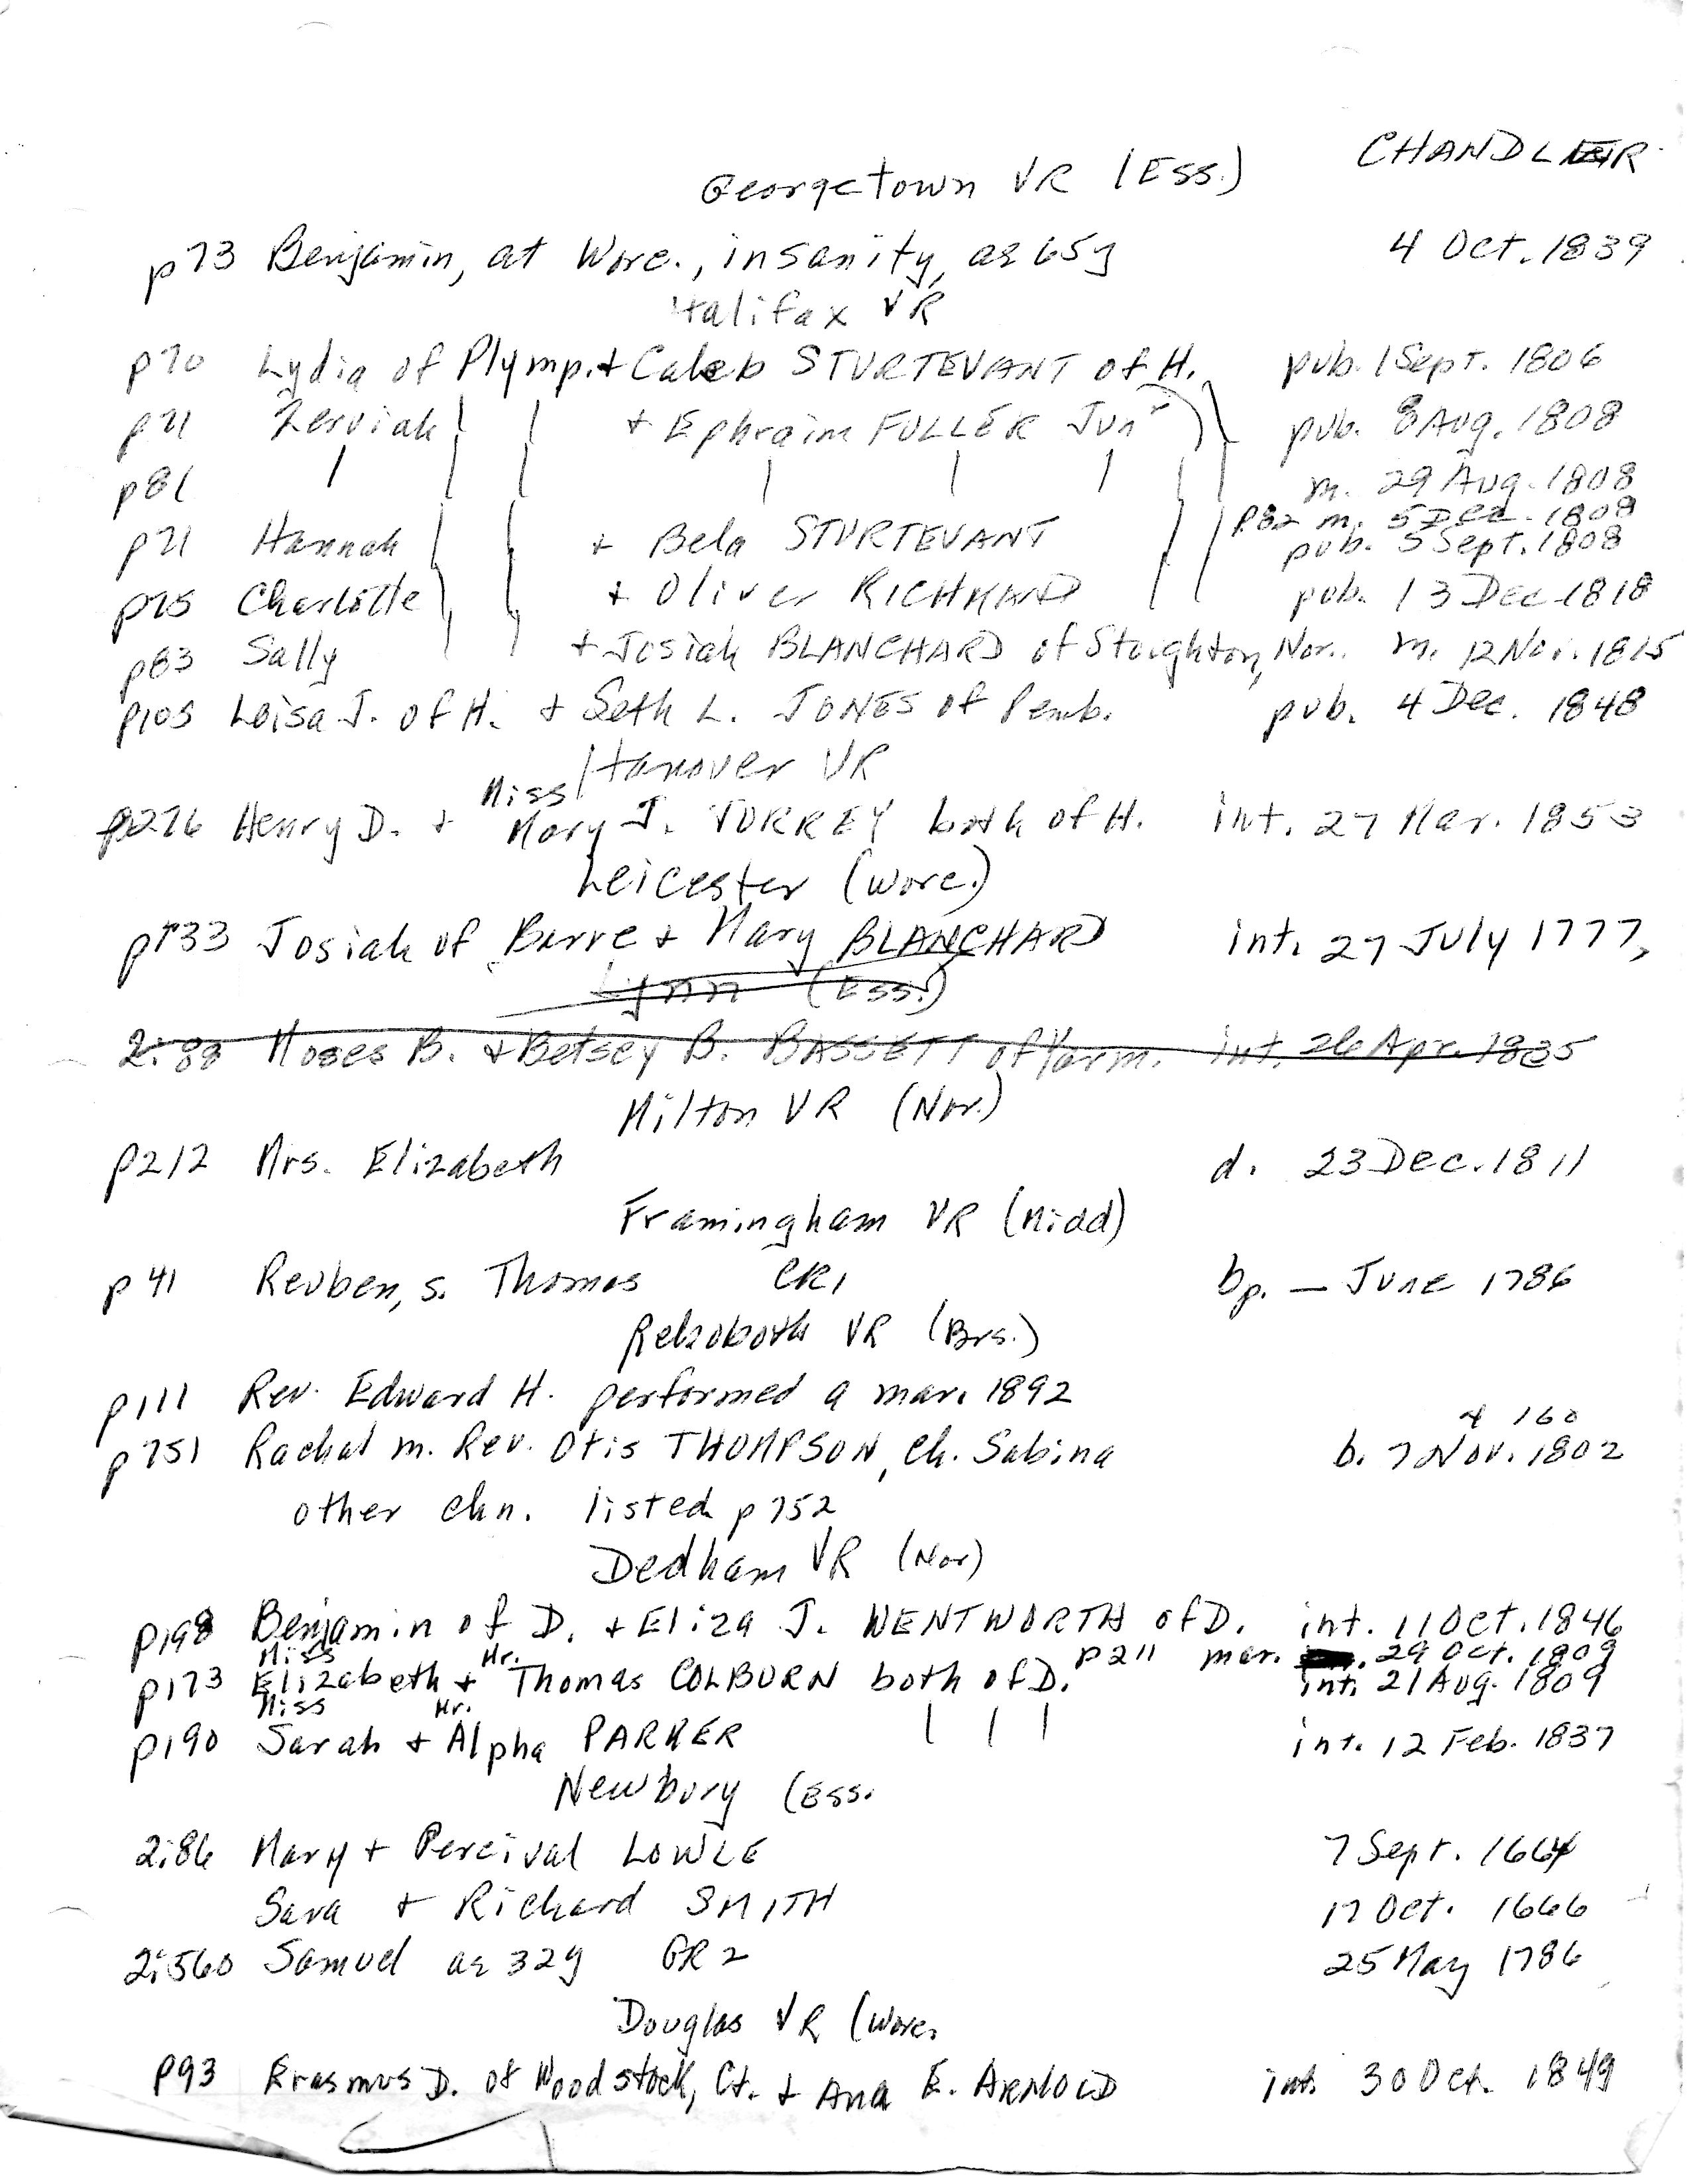 CHANDLER
Georgetown VR (Ess.)
p73 Benjamin, at Worc., insanity, ae 65y 4 Oct. 1839
Halifax VR
p70 Lydia of Plymp. + Caleb STURTEVANT of H. pub. 1 Sept. 1806
p71 Zerviah + Ephraim FULLER Junr pub. 8 Aug. 1808
p81 m. 29 Aug. 1808
p82 m. 5 Dec. 1808
p71 Hannah + Bela STURTEVANT pub. 5 Sept. 1808
p75 Charlotte + Oliver RICHMOND pub. 13 Dec 1818
p83 Sally + Josiah BLANCHARD of Stoughton, Nor. m. 12 Nov. 1815
p105 Loisa J. of H. + Seth L. JONES of Pemb. pub. 4 Dec. 1848
Hanover VR
Miss
p276 Henry D. + Mary J. TORREY both of H. int. 27 Mar. 1853
Leicester (Worc.)
p133 Josiah of Barre + Mary BLANCHARD int. 27 July 1777,
Lynn (Ess.)
2:88 Moses B. + Betsey B. BASSETT of Yarm. int. 26 Apr. 1835
Milton VR (Nor.)
p212 Mrs. Elizabeth d. 23 Dec. 1811
Framingham VR (Midd)
p41 Reuben, s. Thomas CR1 bp. — June 1786
Rehoboth VR (Brs.)
p111 Rev. Edward H. performed a mar. 1892
+ 160
p751 Rachal m. Rev. Otis THOMPSON, ch. Sabina b. 7 Nov. 1802
other chn. listed p752
Dedham VR (Nor)
p198 Benjamin of D. + Eliza J. WENTWORTH of D. int. 11 Oct. 1846
Miss Mr. p211 mar. 29 Oct. 1809
p173 Elizabeth + Thomas COLBURN both of D. int. 21 Aug. 1809
Miss Mr.
p190 Sarah + Alpha PARKER int. 12 Feb. 1837
Newbury (Ess.
2:86 Mary + Percival LOWLE 7 Sept. 1664
Sara + Richard SMITH 17 Oct. 1666
2:560 Samuel ae 32y GR2 25 May 1786
Douglas VR (Worc.
p93 Erasmus D. of Woodstock, Ct. + Ana E. ARNOLD int. 30 Oct. 1849